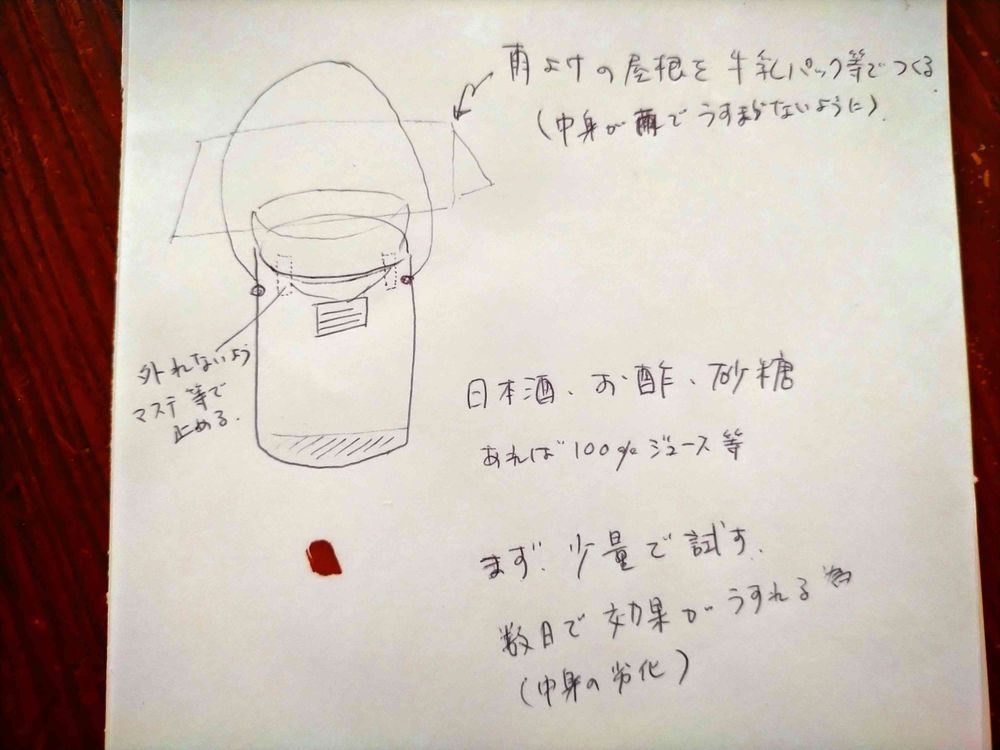 雨よけの屋根を牛乳パック等でつくる
(中身が雨でうすまらないように)
外れないよう
マステ等で
止める.
日本酒、お酢、砂糖
あれば100%ジュース等
まず.少量で試す.
数日で効果がうすれる為
(中身の劣化)